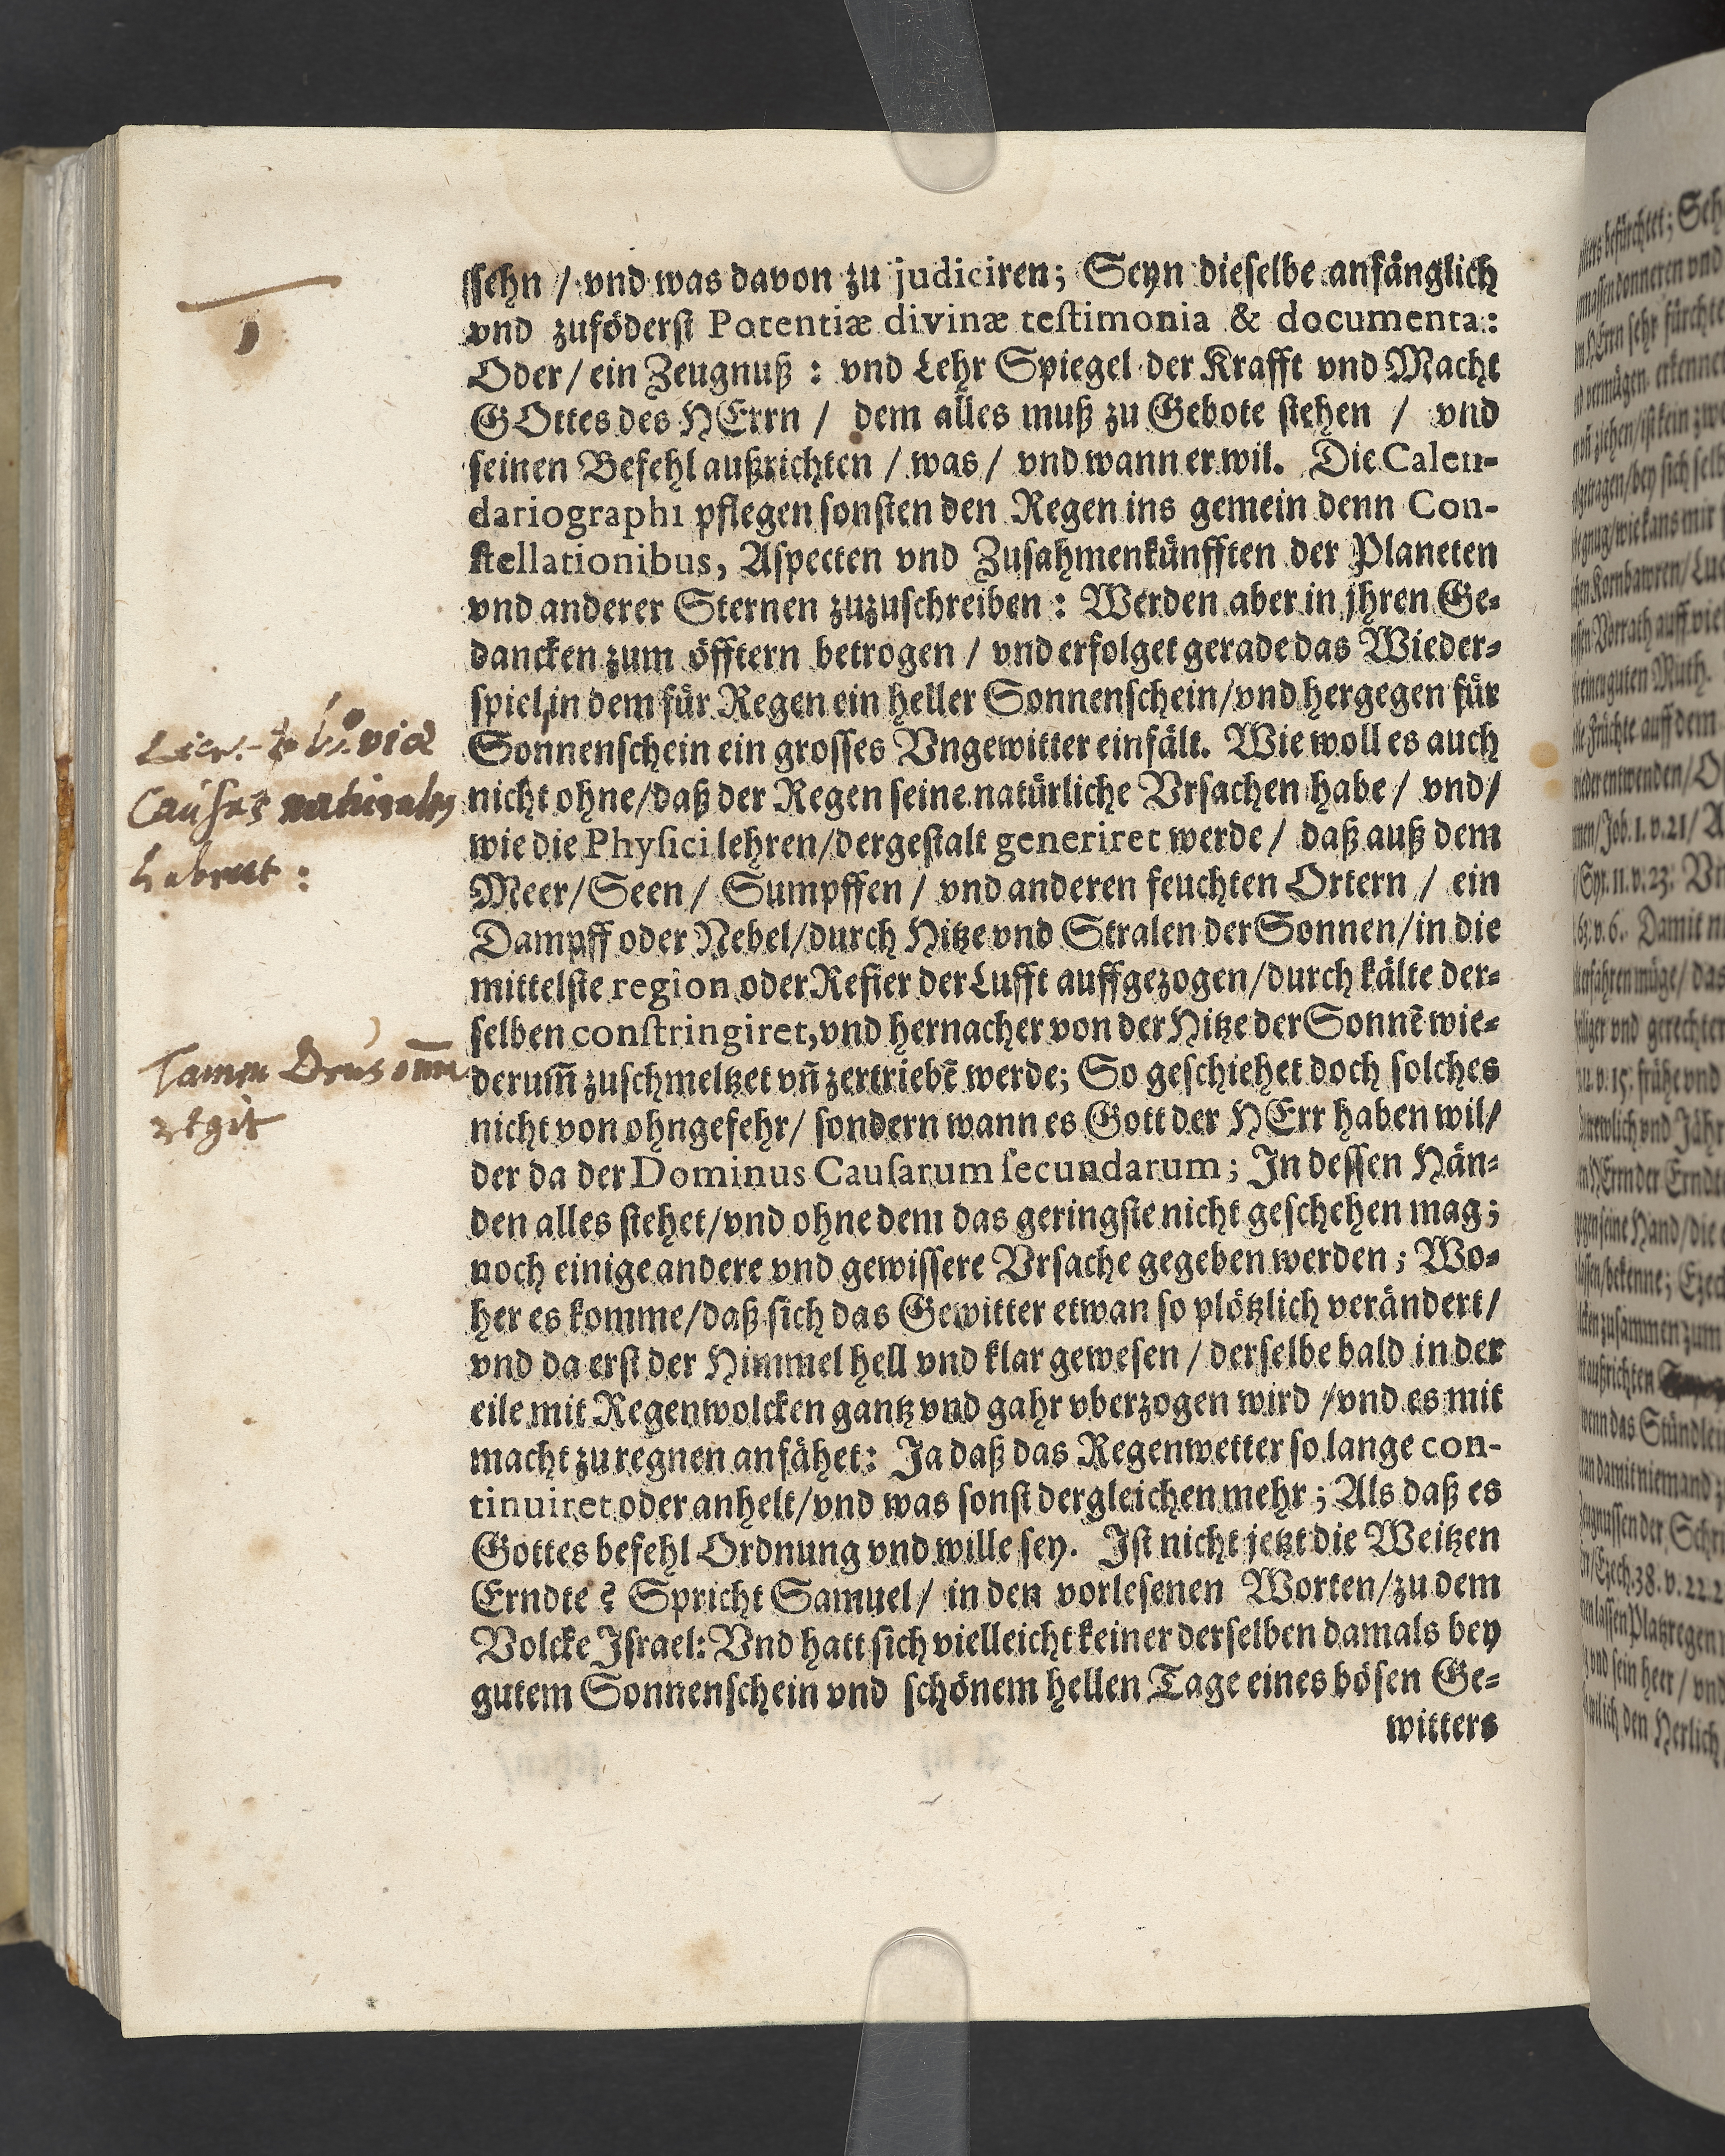 ssehn / vnd was davon zu judiciren; Seyn dieselbe anfänglich
vnd zuföderst Potentiæ divinæ testimonia & documenta:
Oder / ein Zeugnuß : vnd Lehr Spiegel der Krafft vnd Macht
GOttes des HErrn / dem alles muß zu Gebote stehen / vnd
seinen Befehl außrichten / was / vnd wann er wil. Die Calen-
dariographi pflegen sonsten den Regen ins gemein denn Con-
stellationibus, Aspecten vnd Zusahmenkünfften der Planeten
vnd anderer Sternen zuzuschreiben : Werden aber in jhren Ge-
dancken zum öfftern betrogen / vnd erfolget gerade das Wieder-
spiel, in dem für Regen ein heller Sonnenschein/vnd hergegen für
Sonnenschein ein grosses Vngewitter einfält. Wie woll es auch
nicht ohne/daß der Regen seine natürliche Vrsachen habe / vnd/
wie die Physici lehren/dergestalt generiret werde / daß auß dem
Meer/Seen / Sumpffen / vnd anderen feuchten Ortern / ein
Dampff oder Nebel/durch Hitze vnd Stralen der Sonnen/in die
mittelste region oder Refier der Lufft auffgezogen/durch kälte der-
selben constringiret, vnd hernacher von der Hitze der Sonnē wie-
derum̄ zuschmeltzet vn̄ zertriebē werde; So geschiehet doch solches
nicht von ohngefehr/ sondern wann es Gott der HErr haben wil/
der da der Dominus Causarum secundarum; In dessen Hän-
den alles stehet/vnd ohne dem das geringste nicht geschehen mag;
noch einige andere vnd gewissere Vrsache gegeben werden; Wo-
her es komme/daß sich das Gewitter etwan so plötzlich verändert/
vnd da erst der Himmel hell vnd klar gewesen / derselbe bald in der
eile mit Regenwolcken gantz vnd gahr vberzogen wird /vnd es mit
macht zu regnen anfähet: Ja daß das Regenwetter so lange con-
tinuiret oder anhelt/vnd was sonst dergleichen mehr; Als daß es
Gottes befehl Ordnung vnd wille sey. Ist nicht jetzt die Weitzen
Erndte? Spricht Samuel/ in den vorlesenen Worten/zu dem
Volcke Israel: Vnd hatt sich vielleicht keiner derselben damals bey
gutem Sonnenschein vnd schönem hellen Tage eines bösen Ge-
witters
1
Causas naturales
habent :
Tamen Deus om̄ia
regit